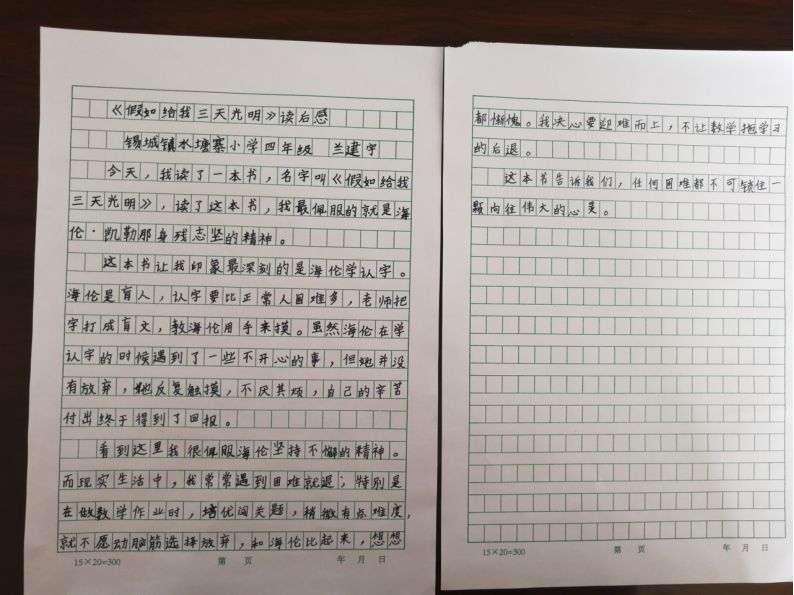 《假如给我三天光明》读后感
锡城镇水塘寨小学四年级 兰建宇
今天，我读了一本书，名字叫《假如给我
三天光明》，读了这本书，我最佩服的就是海
伦·凯勒那身残志坚的精神。
这本书让我印象最深刻的是海伦学认字。
海伦是盲人，认字要比正常人困难多，老师把
字打成盲文，教海伦用手来摸。虽然海伦在学
认字的时候遇到了一些不开心的事，但她并没
有放弃，她反复触摸，不厌其烦，自己的辛苦
付出终于得到了回报。
看到这里我很佩服海伦坚持不懈的精神。
而现实生活中，我常常遇到困难就退；特别是
在做数学作业时，培优闯关题，稍微有点难度，
就不愿动脑筋选择放弃，和海伦比起来，想想
15×20=300 第 页 年 月 日
都惭愧。我决心要迎难而上，不让数学拖学习
的后退。
这本书告诉我们，任何困难都不可锁住一
颗向往伟大的心灵。
15×20=300 第 页 年 月 日